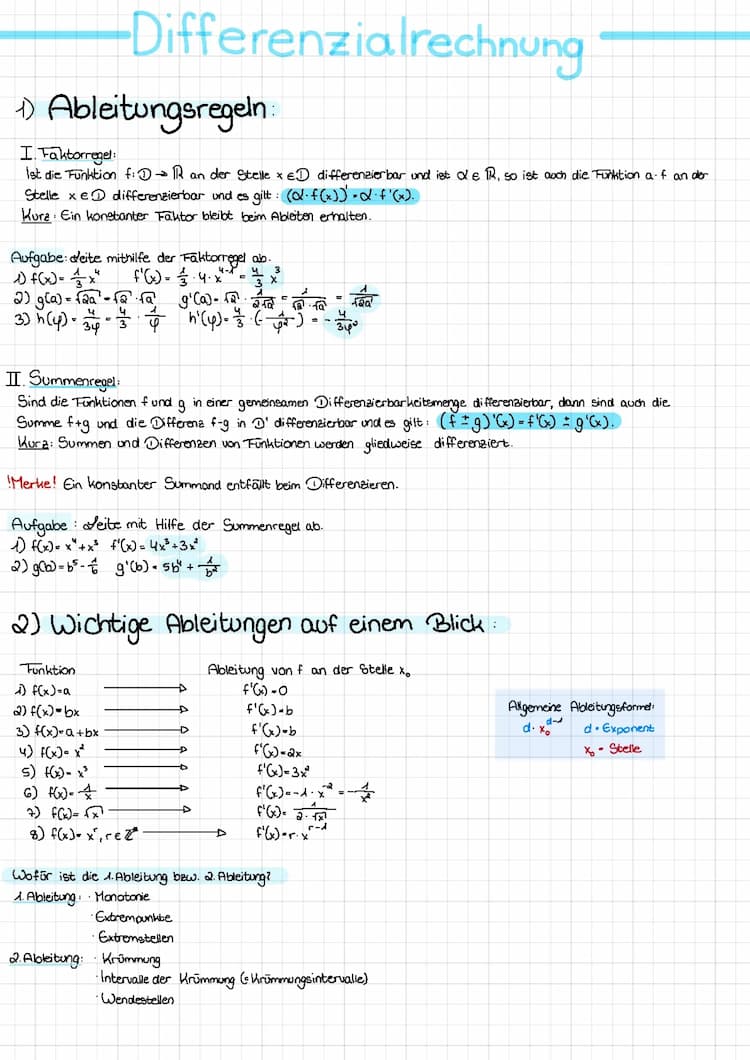 Differenzialrechnung
1) Ableitungsregeln:
I. Faktorregel:
Ist die Funktion f: D → ℝ an der Stelle x ∈ D differenzierbar und ist α ∈ ℝ, so ist auch die Funktion a·f an der
Stelle x ∈ D differenzierbar und es gilt: (α·f(x))' = α·f'(x).
Kurz: Ein konstanter Faktor bleibt beim Ableiten erhalten.
Aufgabe: Leite mithilfe der Faktorregel ab.
1) f(x) = 1/3 x⁴ f'(x) = 1/3 · 4 · x⁴⁻¹ = 4/3 x³
2) g(a) = √2a = √2 · √a g'(a) = √2 · 1/(2√a) = 1/(√2 · √a) = 1/√2a
3) h(φ) = 4/3φ = 4/3 · 1/φ h'(φ) = 4/3 · (- 1/φ²) = - 4/3φ²
II. Summenregel:
Sind die Funktionen f und g in einer gemeinsamen Differenzierbarkeitsmenge differenzierbar, dann sind auch die
Summe f+g und die Differenz f-g in D' differenzierbar und es gilt: (f ± g)'(x) = f'(x) ± g'(x).
Kurz: Summen und Differenzen von Funktionen werden gliedweise differenziert.
!Merke! Ein konstanter Summand entfällt beim Differenzieren.
Aufgabe: Leite mit Hilfe der Summenregel ab.
1) f(x) = x⁴ + x³ f'(x) = 4x³ + 3x²
2) g(b) = b⁵ - 1/b g'(b) = 5b⁴ + 1/b²
2) Wichtige Ableitungen auf einem Blick:
Funktion Ableitung von f an der Stelle x₀
1) f(x) = a → f'(x) = 0
2) f(x) = bx → f'(x) = b
3) f(x) = a + bx → f'(x) = b
4) f(x) = x² → f'(x) = 2x
5) f(x) = x³ → f'(x) = 3x²
6) f(x) = 1/x → f'(x) = -1 · x⁻² = - 1/x²
7) f(x) = √x → f'(x) = 1/(2·√x)
8) f(x) = xʳ, r ∈ ℤ → f'(x) = r · xʳ⁻¹
Allgemeine Ableitungsformel:
d · x₀ᵈ⁻¹ d = Exponent
x₀ = Stelle
Wofür ist die 1. Ableitung bzw. 2. Ableitung?
1. Ableitung: · Monotonie
· Extrempunkte
· Extremstellen
2. Ableitung: · Krümmung
· Intervalle der Krümmung (= Krümmungsintervalle)
· Wendestellen